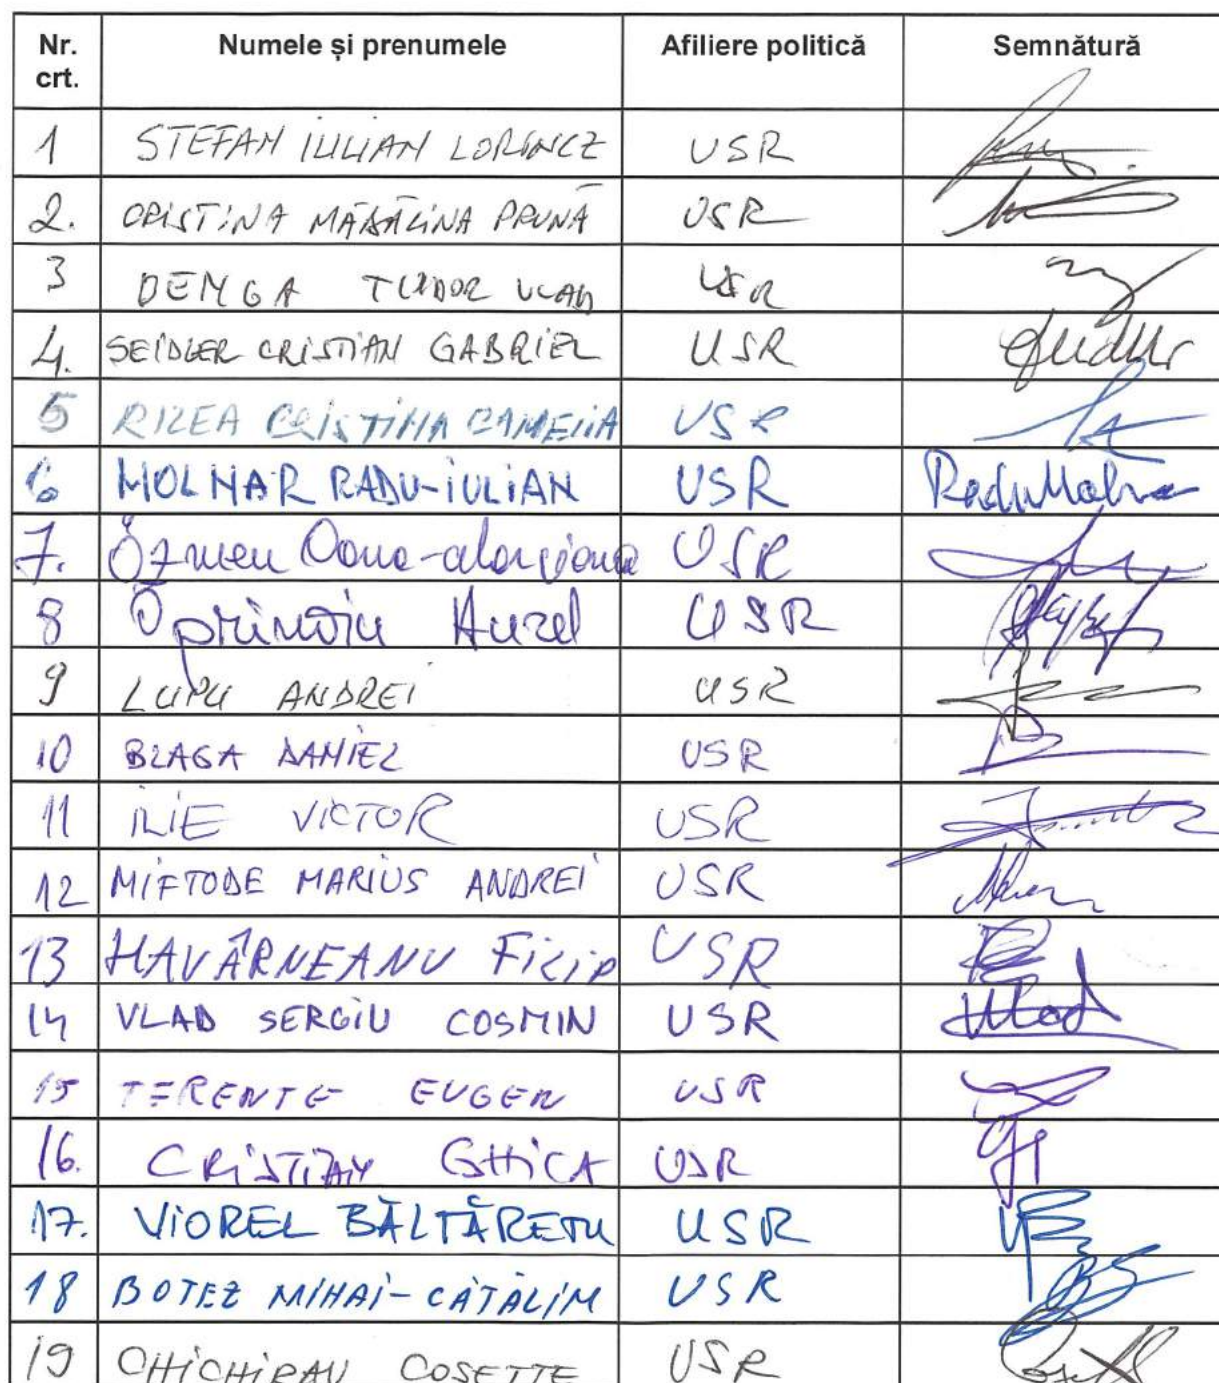 Nr. crt. Numele și prenumele Afiliere politică Semnătură
1 STEFAN IULIAN LORINCZ USR
2. CRISTINA MĂDĂLINA PRUNĂ USR
3 BENGA TUDOR VLAD USR
4. SEIDLER CRISTIAN GABRIEL USR
5 RIZEA CRISTINA CAMELIA USR
6 MOLNAR RADU-IULIAN USR Radu Molnar
7. Özmen Oana-alexandra USR
8 Oprinoiu Aurel USR
9 LUPU ANDREI USR
10 BLAGA DANIEL USR
11 ILIE VICTOR USR
12 MIFTODE MARIUS ANDREI USR
13 HAVÂRNEANU FILIP USR
14 VLAD SERGIU COSMIN USR Vlad
15 TERENTE EUGEN USR
16. CRISTIAN GHICA USR
17. VIOREL BĂLTĂREȚU USR
18 BOTEZ MIHAI-CĂTĂLIN USR
19 CHICHIRĂU COSETTE USR